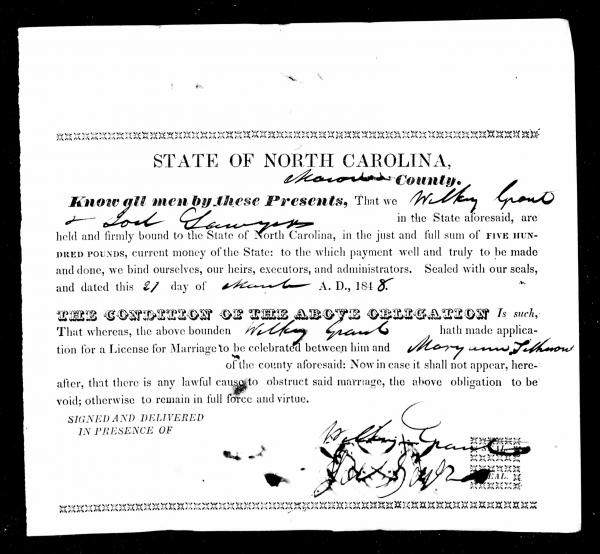 STATE OF NORTH CAROLINA,
County.
Know all men by these Presents, That we Wilky Grant
& Joel Sawyers in the State aforesaid, are
held and firmly bound to the State of North Carolina, in the just and full sum of FIVE HUN-
DRED POUNDS, current money of the State: to the which payment well and truly to be made
and done, we bind ourselves, our heirs, executors, and administrators. Sealed with our seals,
and dated this 21 day of March A. D., 1848.
THE CONDITION OF THE ABOVE OBLIGATION Is such,
That whereas, the above bounden Wilky Grant hath made applica-
tion for a License for Marriage to be celebrated between him and Mary ann
of the county aforesaid: Now in case it shall not appear, here-
after, that there is any lawful cause to obstruct said marriage, the above obligation to be
void; otherwise to remain in full force and virtue.
SIGNED AND DELIVERED
IN PRESENCE OF
Wilky Grant
SEAL.